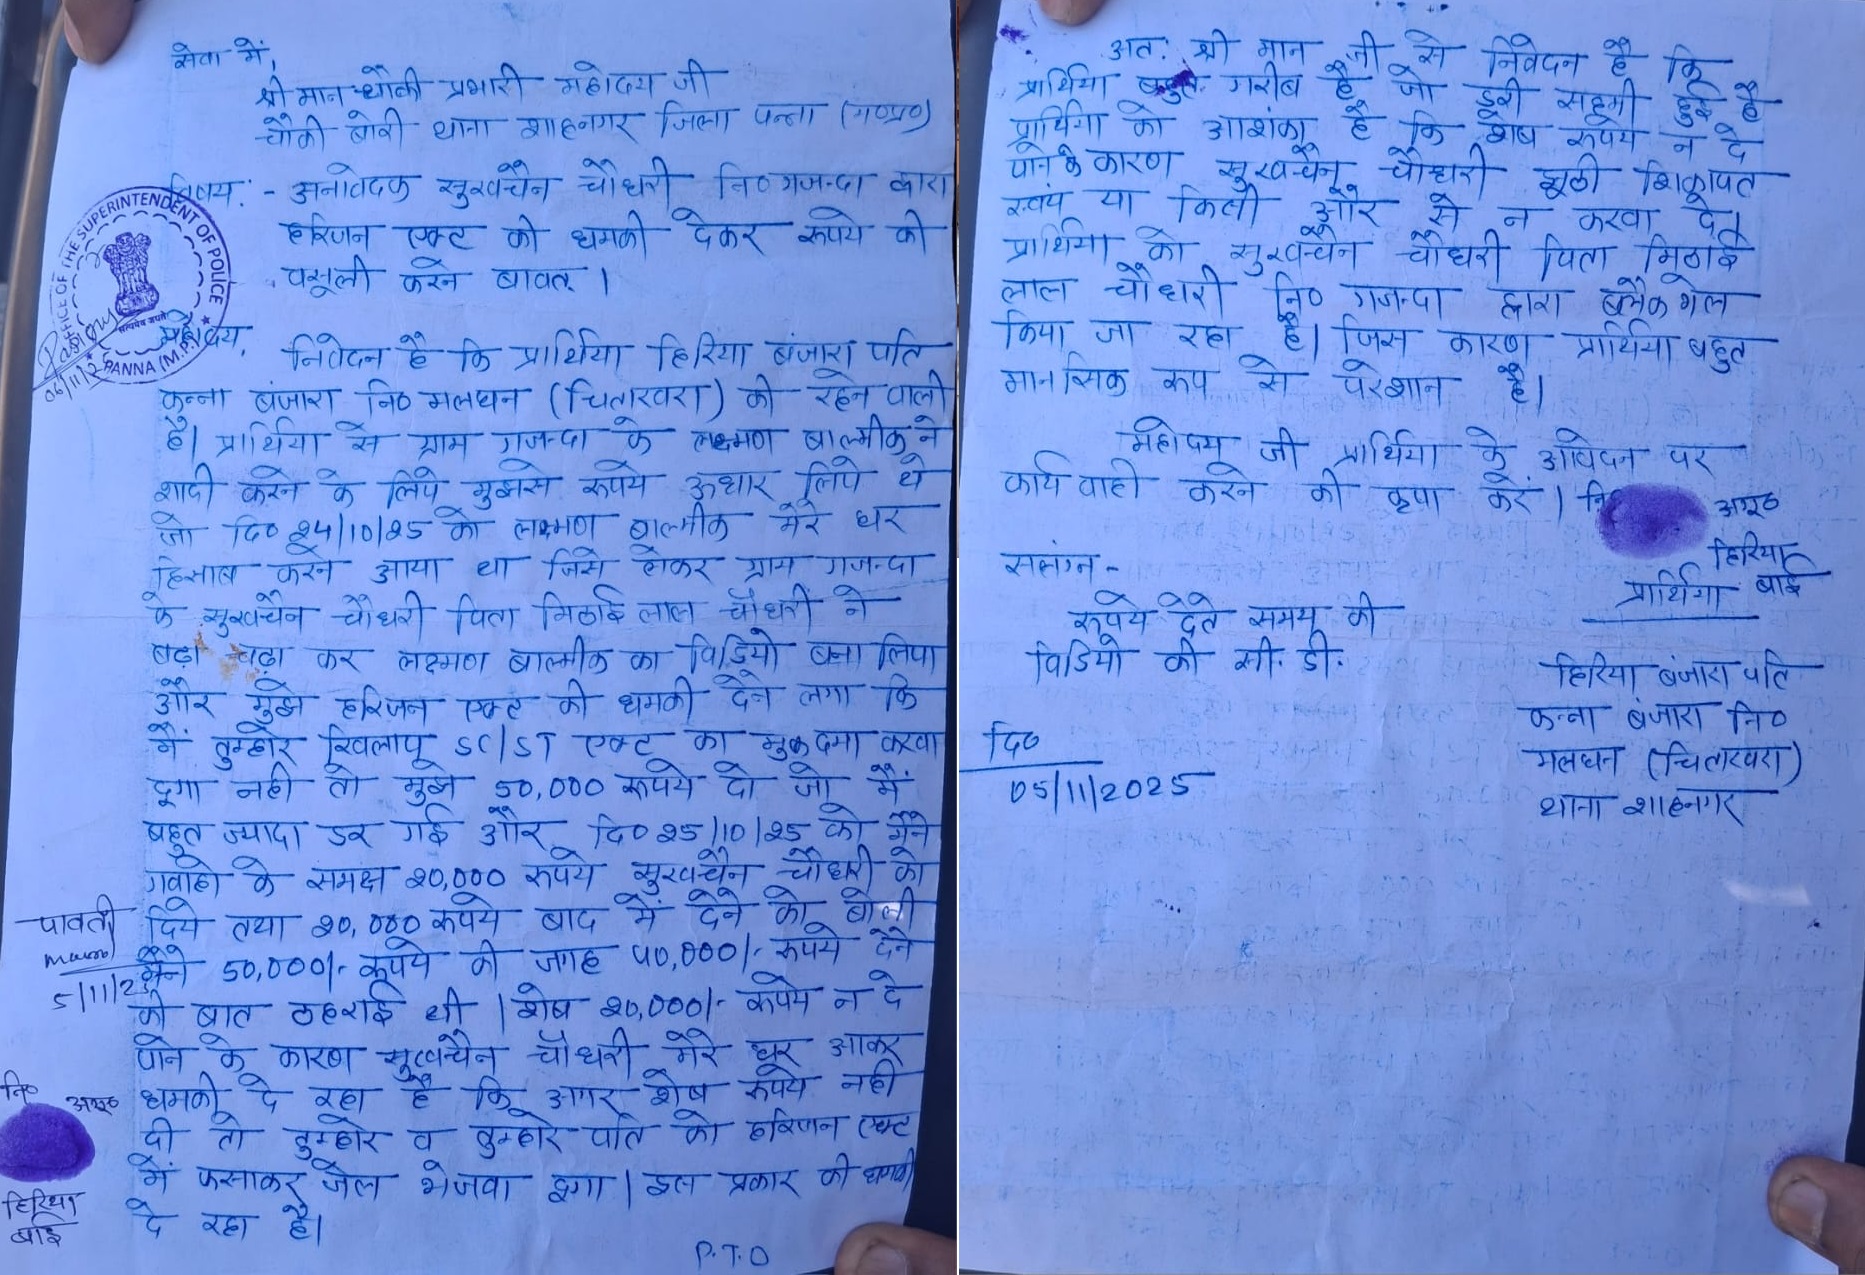 सेवा में,
श्री मान चौकी प्रभारी महोदय जी
चौकी बोरी थाना शाहनगर जिला पन्ना (म०प्र०)
विषय: - अनावेदक सुखचैन चौधरी नि० गजन्दा द्वारा
हरिजन एक्ट की धमकी देकर रूपये की
वसूली करने बावत् ।
OFFICE OF THE SUPERINTENDENT OF POLICE
PANNA (M.P.)
सत्यमेव जयते
06/11/2
महोदय,
निवेदन है कि प्रार्थिया हिरिया बंजारा पति
कन्ना बंजारा नि० मलघन (चिताखरा) की रहने वाली
है। प्रार्थिया से ग्राम गजन्दा के लक्ष्मण बाल्मीक ने
शादी करने के लिये मुझसे रूपये ऊधार लिये थे
जो दि० 24/10/25 को लक्ष्मण बाल्मीक मेरे घर
हिसाब करने आया था जिसे लेकर ग्राम गजन्दा
के सुखचैन चौधरी पिता मिठाई लाल चौधरी ने
बढ़ा चढ़ा कर लक्ष्मण बाल्मीक का विडियो बना लिया
और मुझे हरिजन एक्ट की धमकी देने लगा कि
में तुम्हारे खिलाप SC/ST एक्ट का मुकदमा करवा
दूगा नही तो मुझे 50,000 रूपये दो जो मैं
बहुत ज्यादा डर गई और दि० 25/10/25 को मैंने
गवाहो के समक्ष 20,000 रूपये सुखचैन चौधरी को
दिये तथा 20,000 रूपये बाद में देने को बोली
मैंने 50,000/- रूपये की जगह 40,000/- रूपये देने
की बात ठहराई थी । शेष 20,000/- रूपये न दे
पाने के कारण सुखचैन चौधरी मेरे घर आकर
धमकी दे रहा है कि अगर शेष रूपये नही
दी तो तुम्हारे व तुम्हारे पति को हरिजन एक्ट
में फसाकर जेल भेजवा दूगा । इस प्रकार की धमकी
दे रहा है।
पावती
5/11/25
नि० अगूठ
हिरिया
बाई
P.T.O
अत: श्री मान जी से निवेदन है कि
प्रार्थिया बहुत गरीब है जो डरी सहमी हुई है
प्रार्थिया को आशंका है कि शेष रूपये न दे
पाने के कारण सुखचैन चौधरी झूठी शिकायत
स्वयं या किसी और से न करवा दे।
प्रार्थिया को सुखचैन चौधरी पिता मिठाई
लाल चौधरी नि० गजन्दा द्वारा ब्लैक मेल
किया जा रहा है। जिस कारण प्रार्थिया बहुत
मानसिक रूप से परेशान है।
महोदय जी प्रार्थिया के आवेदन पर
कार्यवाही करने की कृपा करें । नि० अगूठ
हिरिया
बाई
प्रार्थिया
सलंग्न -
रूपये देते समय की
विडियो की सी. डी.
हिरिया बंजारा पति
कन्ना बंजारा नि०
मलघन (चिताखरा)
थाना शाहनगर
दि०
05/11/2025